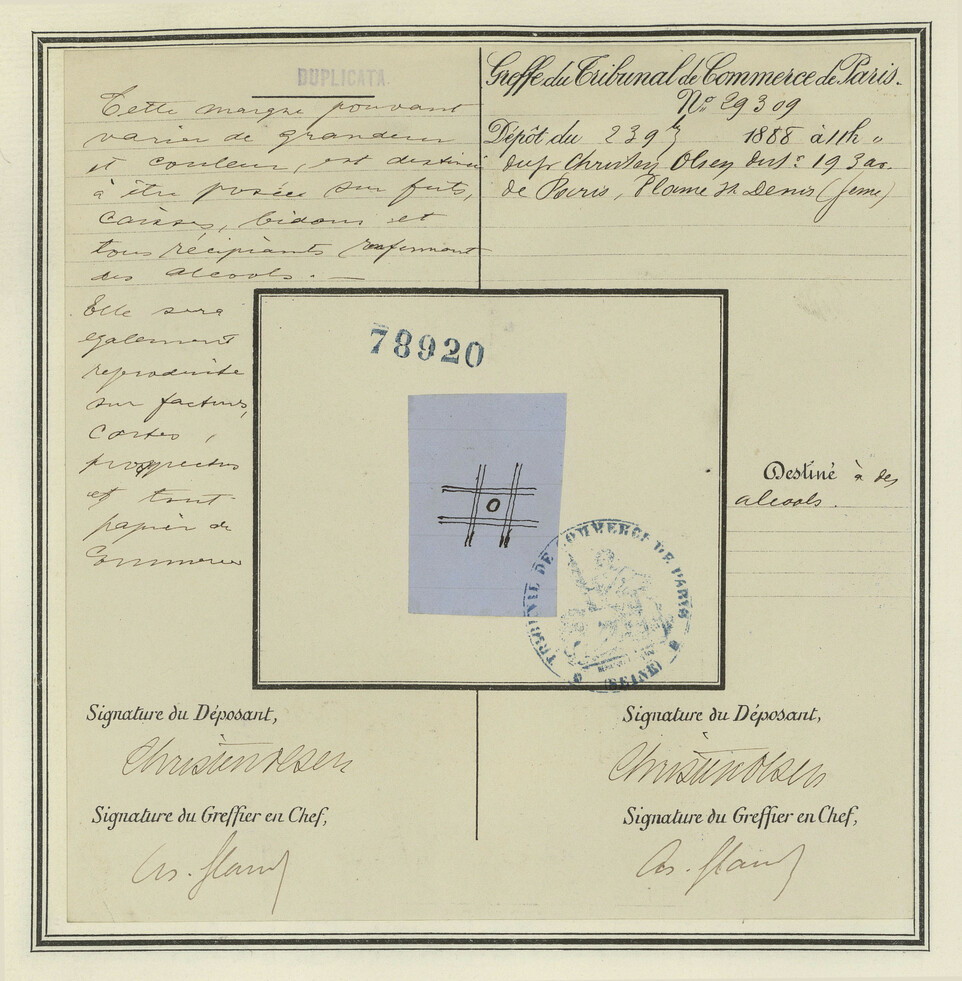 DUPLICATA.
Cette marque pouvant
varier de grandeur
et couleur, est destinée
à être posée sur futs,
caisses, bidons et
tous récipients renfermant
des alcools. —
Elle sera
egalement
reproduite
sur factures,
cartes,
prospectus
et tout
papier de
Commerce
Greffe du Tribunal de Commerce de Paris.
No. 29309
Dépôt du 23 9 1888 à 11h "
Christen Olsen 19 3 ar.
de Paris, Plaine St Denis
78920
O
TRIBUNAL DE COMMERCE DE PARIS
(SEINE)
Destiné à des
alcools.
Signature du Déposant,
Christen Olsen
Signature du Greffier en Chef,
Signature du Déposant,
Christen Olsen
Signature du Greffier en Chef,